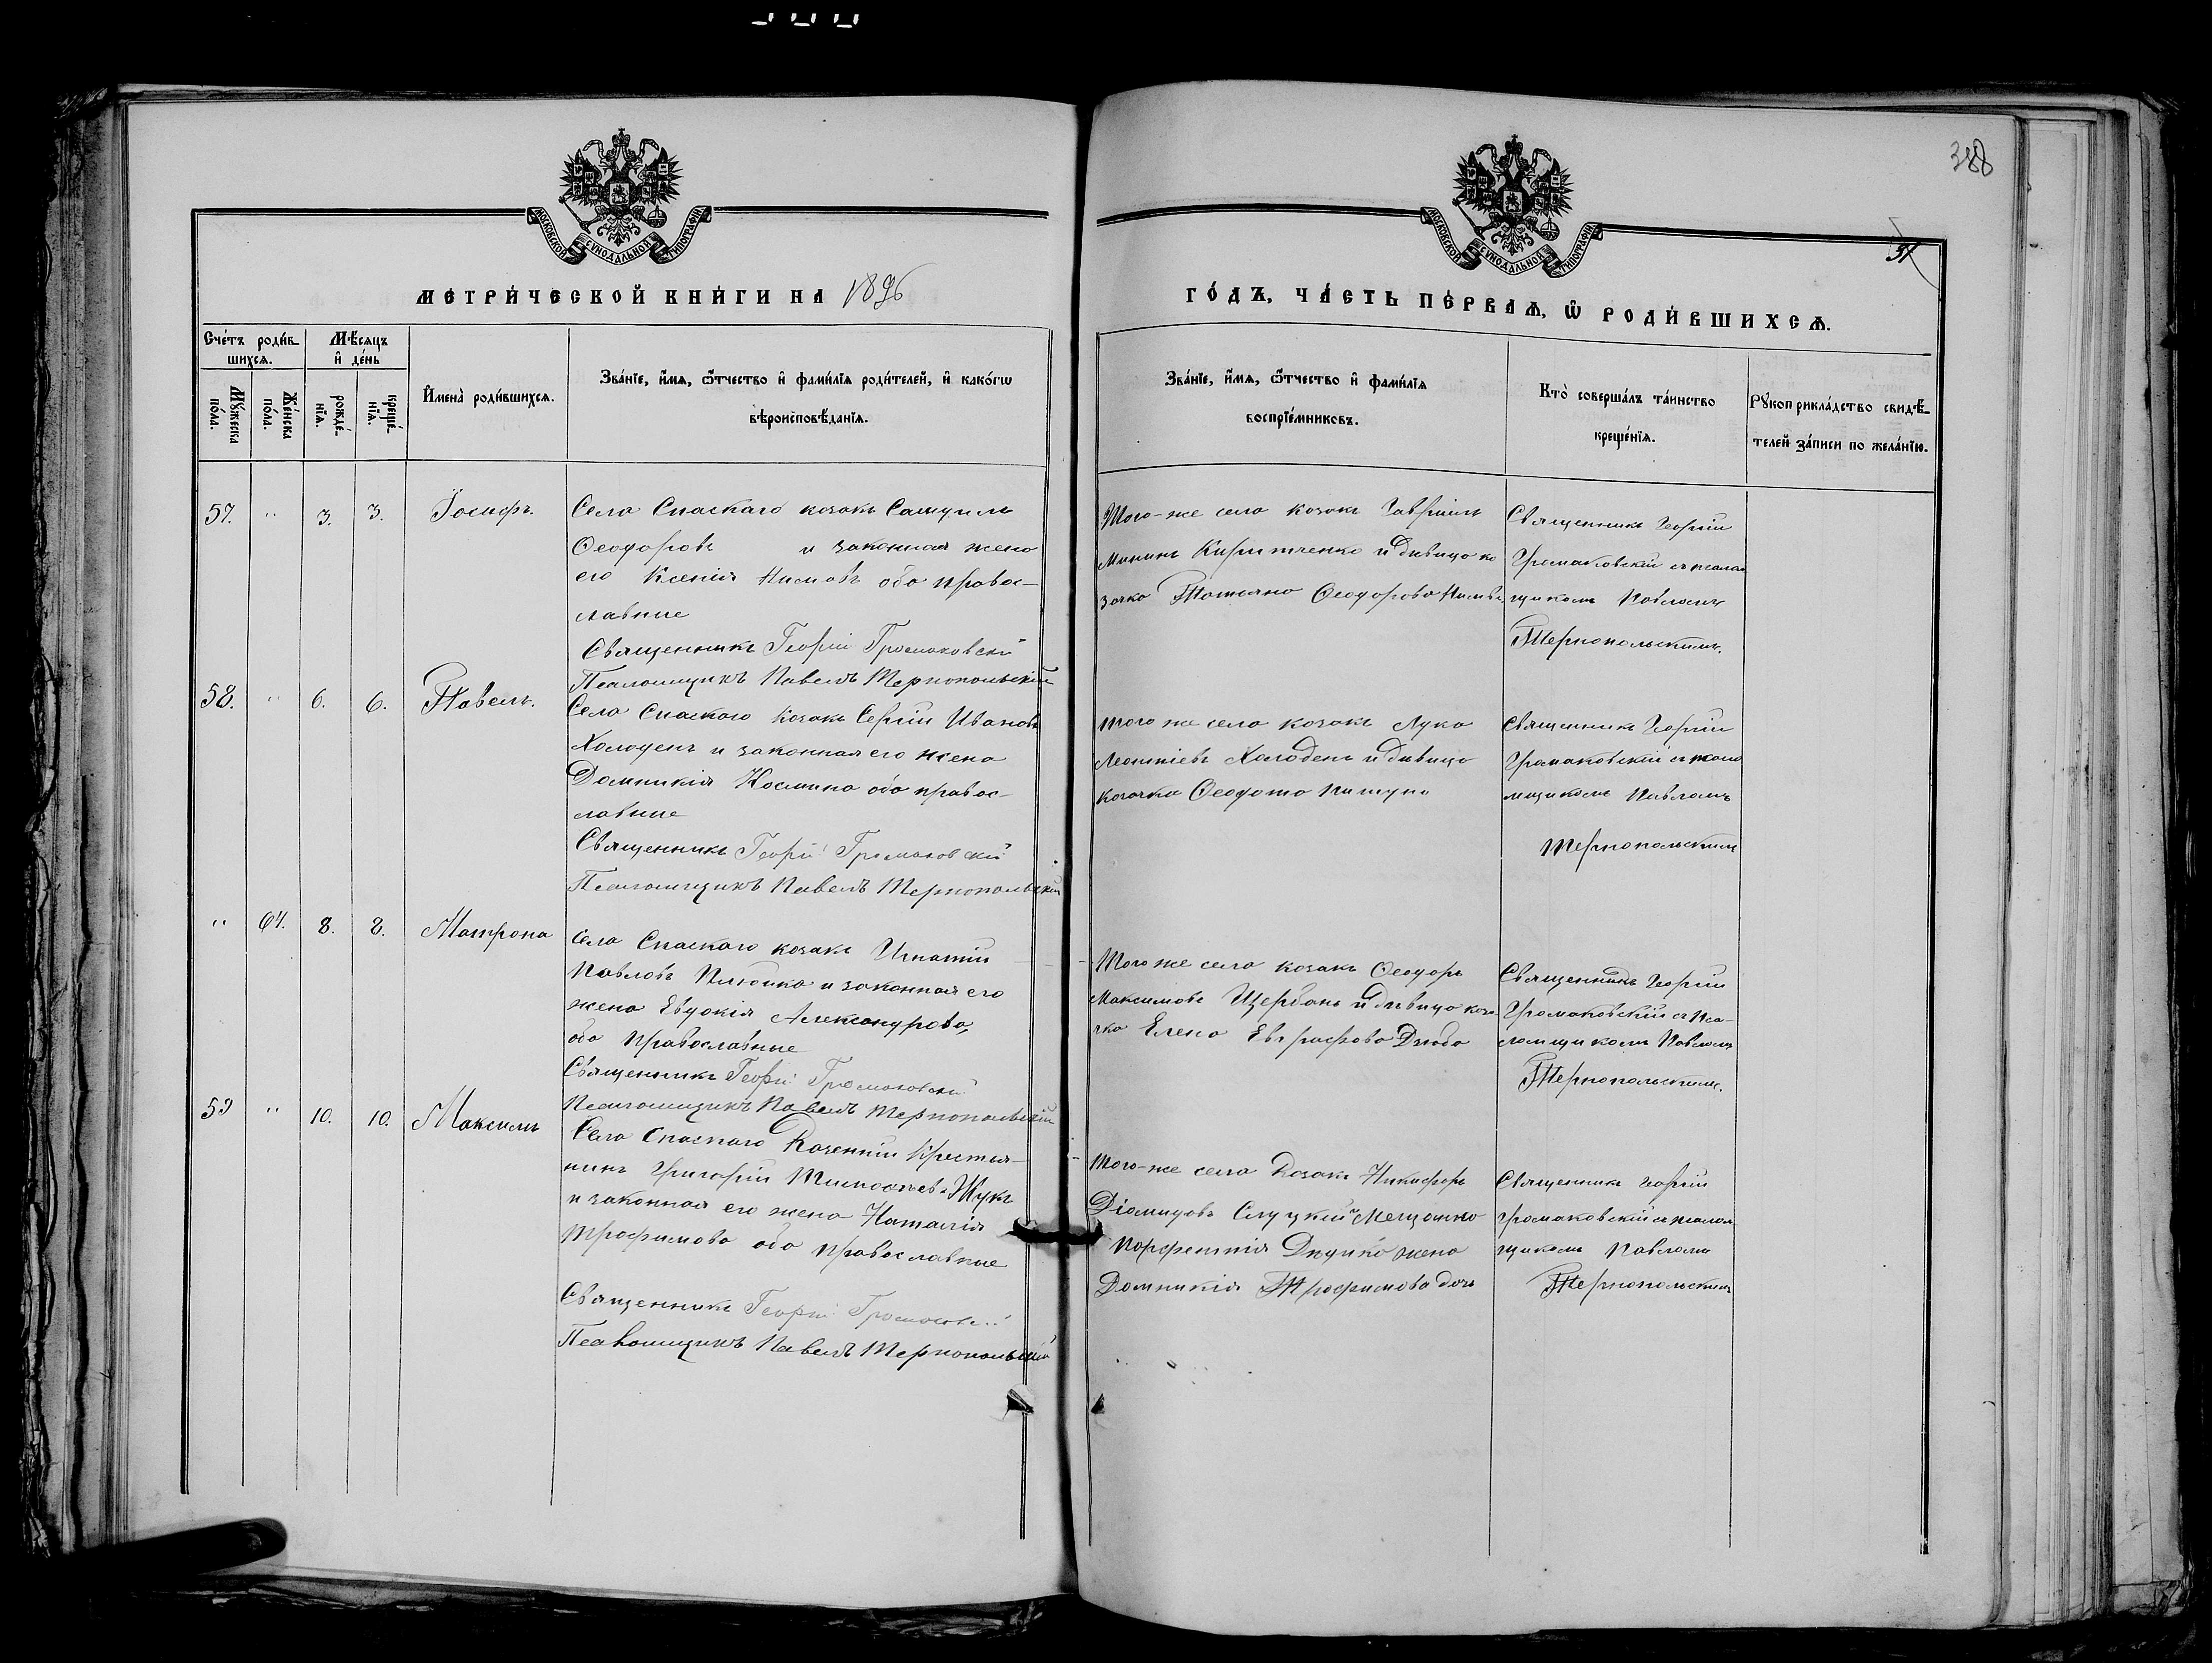 388
31
МОСКОВСКОЙ СѴНОДАЛЬНОЙ ТИПОГРАФІИ
МОСКОВСКОЙ СѴНОДАЛЬНОЙ ТИПОГРАФІИ
МЕТРИ́ЧЕСКОЙ КНИ́ГИ НА 1896
ГО́ДЪ, ЧА́СТЬ ПЕ́РВАѦ, Ѽ РОДИ́ВШИХСѦ.
Сче́тъ роди́в-
шихсѧ.
Мѣ́сяцъ
и҆ де́нь
Мꙋ́жеска
по́ла.
Же́нска
по́ла.
рожде́-
нїѧ.
креще́-
нїѧ.
И҆мена̀ роди́вшихсѧ.
Зва́нїе, и҆́мѧ, ѻ҆́тчество и҆ фами́лїѧ роди́телей, и҆ како́гѡ
вѣроисповѣ́данїѧ.
Зва́нїе, и҆́мѧ, ѻ҆́тчество и҆ фами́лїѧ
воспрїе́мниковъ.
Кто̀ соверша́лъ та́инство
креще́нїѧ.
Рꙋкоприкла́дство свидѣ́-
телей за́писи по жела́нїю.
57. " 3. 3. Іосифъ.
Села Спаскаго козакъ Самуилъ
Ѳеодоровъ и законная жена
его Ксенія оба правос-
лавные
Священникъ Георгій Громаковскій
Псаломщикъ Павелъ Тернопольскій
Того-же села козакъ Гавріилъ
Мининъ Кириченко и дѣвица ко
зачка Татьяна Ѳеодорова
Священникъ Георгій
Громаковскій съ псалом
щикомъ Павломъ
Тернопольскимъ.
58. " 6. 6. Павелъ.
Села Спаскаго козакъ Сергій Ивановъ
Холоденъ и законная его жена
Домникія Космина оба правос-
лавные
Священникъ Георгій Громаковскій
Псаломщикъ Павелъ Тернопольскій
того же села козакъ Лука
Леонтіевъ Холоденъ и дѣвица
козачка Ѳеодота
Священникъ Георгій
Громаковскій съ псало
мщикомъ Павломъ
Тернопольскимъ
" 64. 8. 8. Матрона
Села Спаскаго козакъ Игнатій
Павловъ и законная его
жена Евдокія Александрова,
оба православные
Священникъ Георгій Громаковскій
Псаломщикъ Павелъ Тернопольскій
Того же села козакъ Ѳеодоръ
Максимовъ Щербань и дѣвица коза
чка Елена Евграфова Дзюба
Священникъ Георгій
Громаковскій съ пса-
ломщикомъ Павломъ
Тернопольскимъ.
59 " 10. 10. Максимъ
Села Спаскаго Казенній Крестья-
нинъ Григорій Тимоѳѣевъ Жукъ
и законная его жена Наталія
Трофимова оба православные
Священникъ Георгій Громаковскій
Псаломщикъ Павелъ Тернопольскій
Того-же села Козакъ Никифоръ
Діомидовъ Слуцкій и Мещанка
Домникія Трофимова дочь
Священникъ Георгій
Громаковскій съ псалом
щикомъ Павломъ
Тернопольскимъ